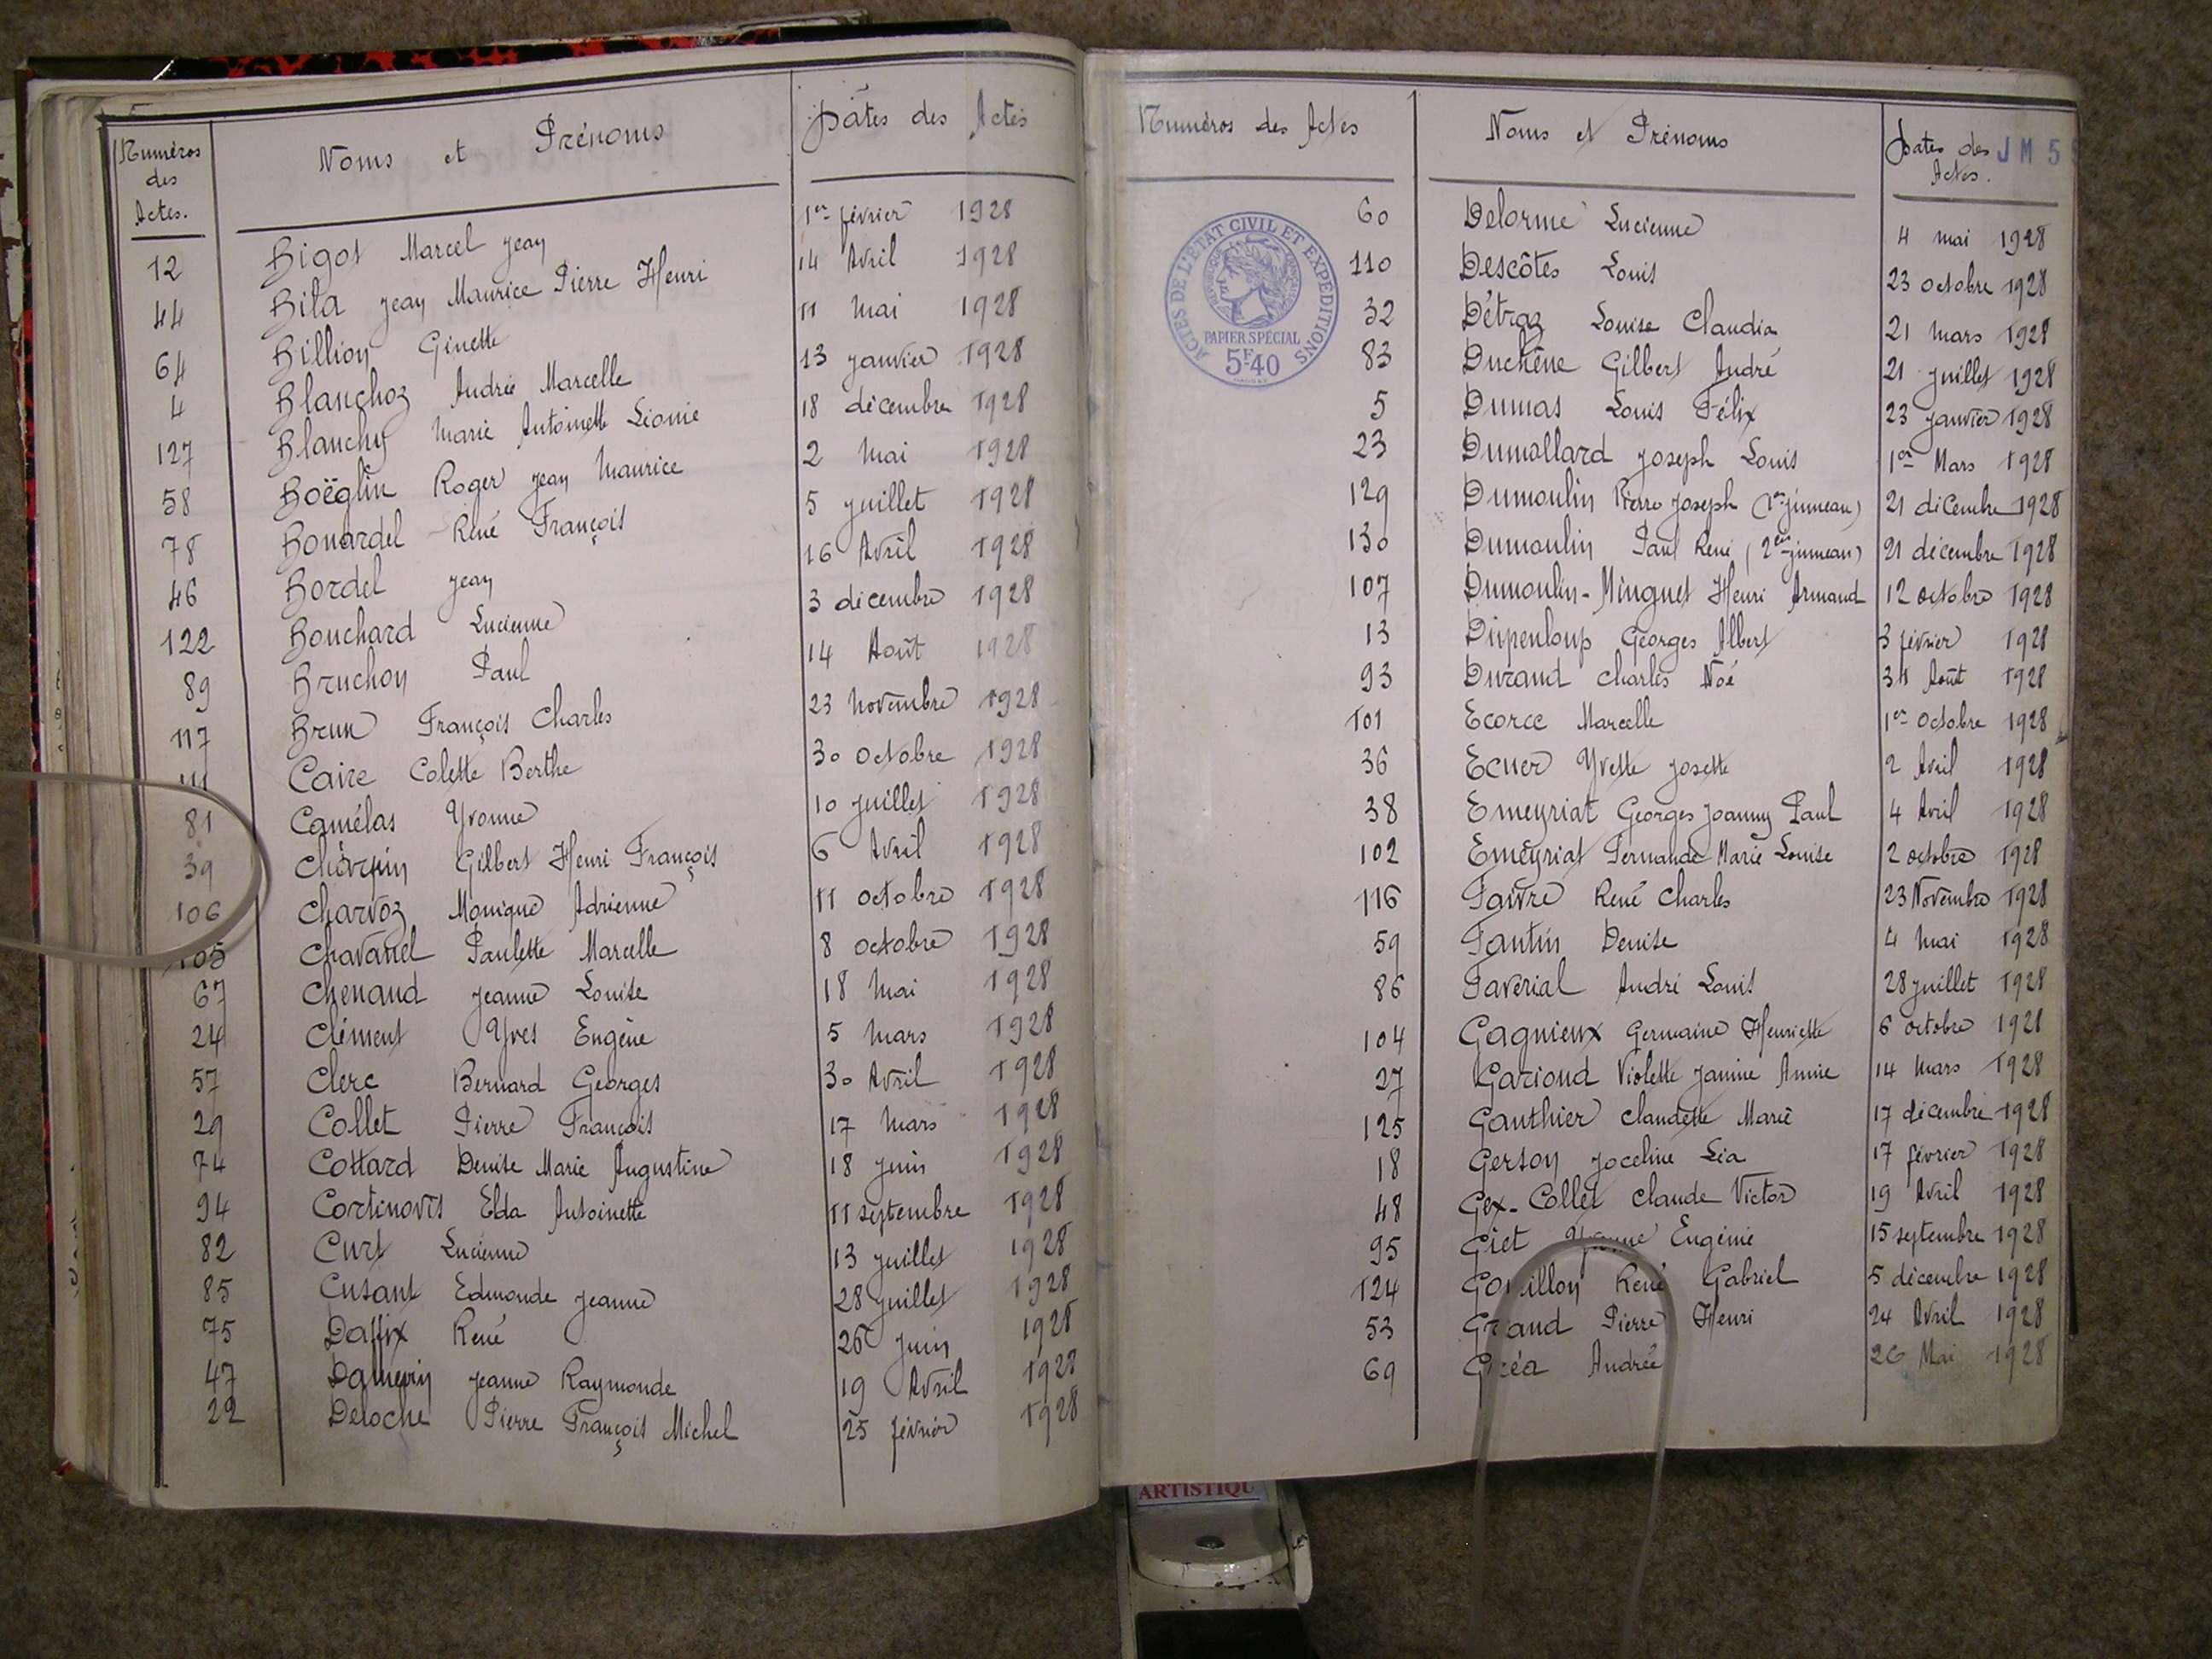 Numéros des Actes.
Noms et Prénoms
Dates des Actes
12 Bigot Marcel Jean 1er février 1928
44 Bila Jean Maurice Pierre Henri 14 Avril 1928
64 Billion Ginette 11 Mai 1928
4 Blanchoz Andrée Marcelle 13 janvier 1928
127 Blanchy Marie Antoinette Léonie 18 décembre 1928
58 Boëglin Roger Jean Maurice 2 Mai 1928
78 Bonardel René François 5 juillet 1928
46 Bordel Jean 16 Avril 1928
122 Bouchard Lucienne 3 décembre 1928
89 Bruchon Paul 14 Août 1928
117 Brun François Charles 23 Novembre 1928
111 Caire Colette Berthe 30 octobre 1928
81 Camélas Yvonne 10 juillet 1928
39 Gilbert Henri François 6 Avril 1928
106 Charvoz Monique Adrienne 11 octobre 1928
105 Chavanel Paulette Marcelle 8 octobre 1928
67 Chenaud Jeanne Louise 18 Mai 1928
24 Clément Yves Eugène 5 Mars 1928
57 Clerc Bernard Georges 30 Avril 1928
29 Collet Pierre François 17 Mars 1928
74 Cottard Denise Marie Augustine 18 juin 1928
94 Cortinovis Elda Antoinette 11 septembre 1928
82 Curt Lucienne 13 juillet 1928
85 Cusant Edmonde Jeanne 28 juillet 1928
75 Daffix René 26 juin 1928
47 Jeanne Raymonde 19 Avril 1928
22 Deloche Pierre François Michel 25 février 1928
Numéros des Actes
Noms et Prénoms
Dates des Actes.
JM 5
ACTES DE L'ÉTAT CIVIL ET EXPÉDITIONS
RÉPUBLIQUE FRANÇAISE
PAPIER SPÉCIAL
5F40
60 Delorme Lucienne 4 mai 1928
110 Descôtes Louis 23 octobre 1928
32 Détraz Louise Claudia 21 Mars 1928
83 Duchêne Gilbert André 21 juillet 1928
5 Dumas Louis Félix 23 janvier 1928
23 Dumollard Joseph Louis 1er Mars 1928
129 Dumoulin Pierre Joseph (1er jumeau) 21 décembre 1928
130 Dumoulin Paul René (2ème jumeau) 21 décembre 1928
107 Dumoulin-Minguet Henri Armand 12 octobre 1928
13 Dupenloup Georges Albert 3 février 1928
93 Durand Charles Noé 31 Août 1928
101 Ecorce Marcelle 1er octobre 1928
36 Ecuer Yvette Josette 2 Avril 1928
38 Emeyriat Georges Joanny Paul 4 Avril 1928
102 Emeyriat Fernande Marie Louise 2 octobre 1928
116 Faivre René Charles 23 Novembre 1928
59 Fantin Denise 4 Mai 1928
86 Faverial André Louis 28 juillet 1928
104 Gagnieux Germaine Henriette 6 octobre 1928
27 Gariond Violette Janine Annie 14 Mars 1928
125 Gauthier Claudette Marie 17 décembre 1928
18 Gerson Joceline Lia 17 février 1928
48 Gex-Collet Claude Victor 19 Avril 1928
95 Giet Eugénie 15 septembre 1928
124 René Gabriel 5 décembre 1928
53 Grand Pierre Henri 24 Avril 1928
69 Gréa Andrée 26 Mai 1928
ARTISTIQU